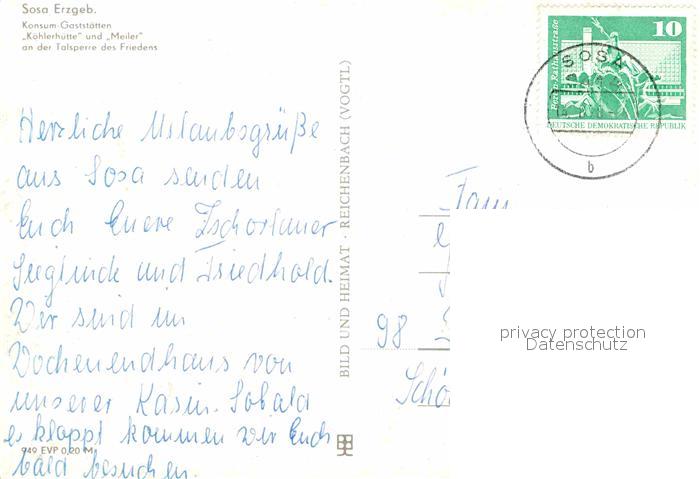 Sosa Erzgeb.
Konsum-Gaststätten
„Köhlerhütte" und „Meiler"
an der Talsperre des Friedens
Herzliche Urlaubsgrüße
aus Sosa senden
Euch Euere Zschorlauer
Sieglinde und Friedhold.
Wir sind im
Wochenendhaus von
unserer Kasin. Sobald
es klappt kommen wir Euch
bald besuchen.
949 EVP 0,20 M
BILD UND HEIMAT · REICHENBACH (VOGTL)
10
Berlin-Rathausstraße
DEUTSCHE DEMOKRATISCHE REPUBLIK
SOSA
b
Fam
98
Schö
privacy protection
Datenschutz